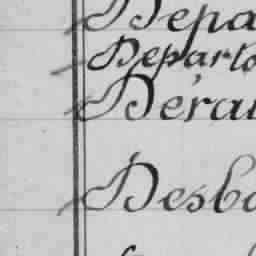 Depa
Departo
Dérau
Desbo